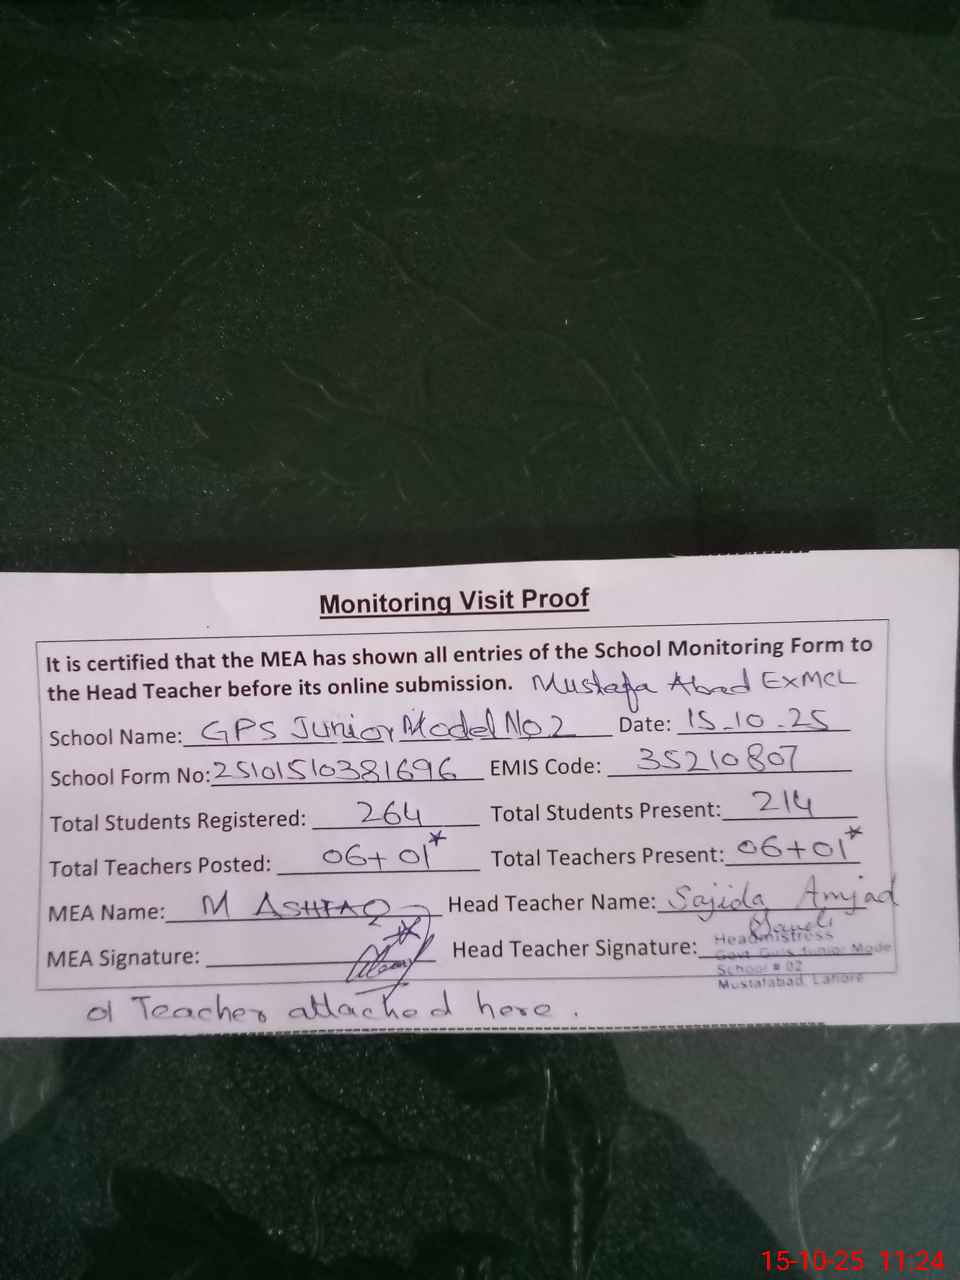 Monitoring Visit Proof
It is certified that the MEA has shown all entries of the School Monitoring Form to
the Head Teacher before its online submission. Mustafa Abad ExMCL
School Name: GPS Junior Model No.2 Date: 15-10-25
School Form No: 25101510381696 EMIS Code: 35210807
Total Students Registered: 264 Total Students Present: 214
Total Teachers Posted: 06+01* Total Teachers Present: 06+01*
MEA Name: M ASHFAQ Head Teacher Name: Sajida Amjad
MEA Signature: Head Teacher Signature:
Headmistress
Govt Girls Junior Model
School # 02
Mustafabad, Lahore
01 Teacher attached here.
15-10-25 11:24